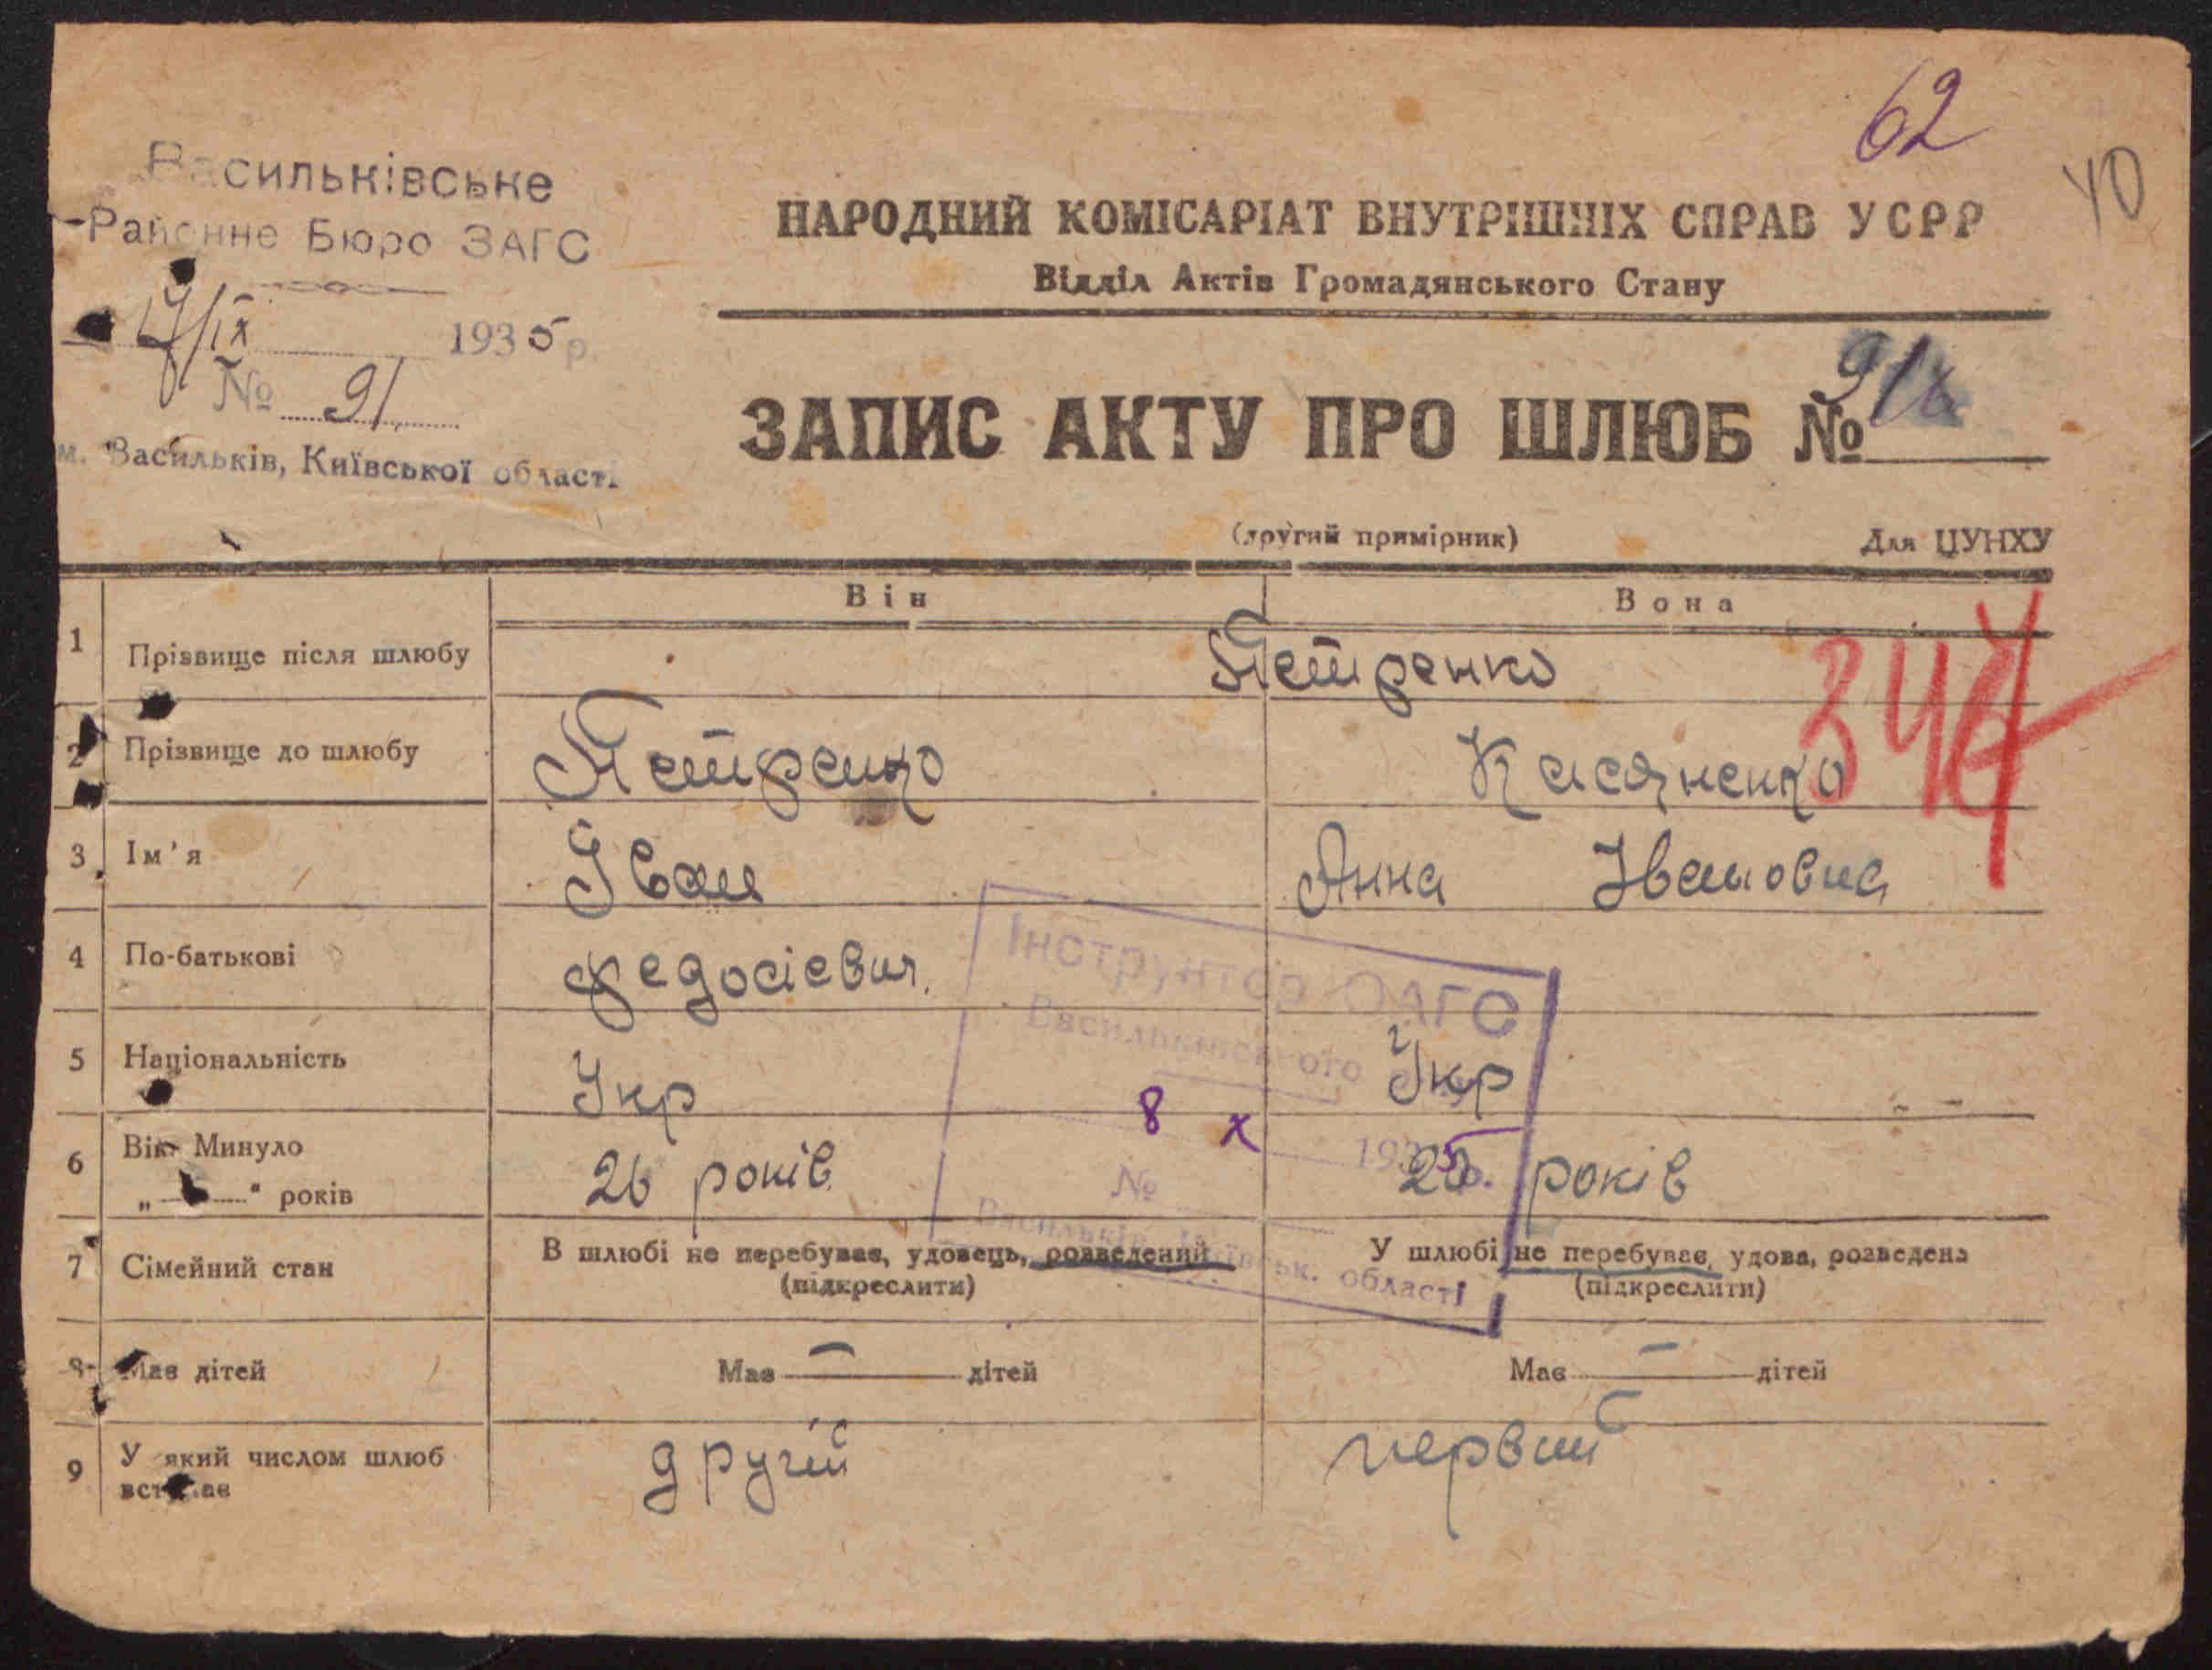 62
40
Васильківське
Районне Бюро ЗАГС
/IX 1935 р.
№ 91
м. Васильків, Київської області
НАРОДНИЙ КОМІСАРІАТ ВНУТРІШНІХ СПРАВ УСРР
Відділ Актів Громадянського Стану
ЗАПИС АКТУ ПРО ШЛЮБ № 91
(другий примірник) Для ЦУНХУ
Він Вона
1 Прізвище після шлюбу Петренко
2 Прізвище до шлюбу Петренко Касяненко
3 Ім'я Іван Анна Івановна
4 По-батькові Федосієвич.
Інструктор ЗАГС
Васильківського
5 Національність Укр Укр
8 X 1935
6 Вік Минуло
„ “ років 26 років років
№
Васильків, Київськ. області
7 Сімейний стан В шлюбі не перебуває, удовець, розведений У шлюбі не перебуває, удова, розведена
(підкреслити) (підкреслити)
8 Має дітей Має — дітей Має — дітей
9 У який числом шлюб другій первий
вступає